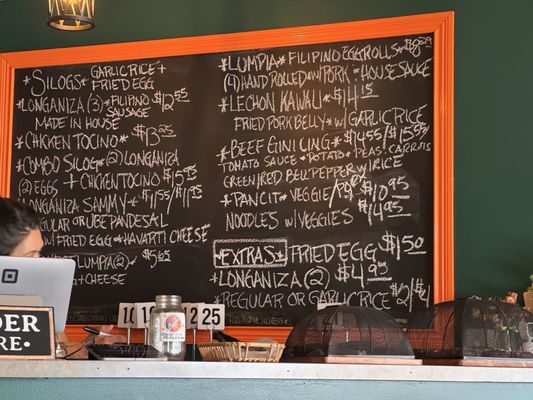 *SILOGS* GARLIC RICE +
FRIED EGG
*LONGANIZA (3) *FILIPINO $12.95
SAUSAGE
MADE IN HOUSE
*CHICKEN TOCINO* $13.25
*COMBO SILOG *(2) LONGANIZA
(2) EGGS + CHICKEN TOCINO $15.95
LONGANIZA SAMMY
REGULAR OR UBE PANDESAL
W/ FRIED EGG * HAVARTI CHEESE
LUMPIA (2) * $5.95
+ CHEESE
*LUMPIA* FILIPINO EGGROLLS $8.59
(4) HAND ROLLED W/ PORK * HOUSE SAUCE
*LECHON KAWALI * $14.15
FRIED PORK BELLY * W/ GARLIC RICE
*BEEF GINILING * $14.55/$15.55
TOMATO SAUCE * POTATO * PEAS * CARROTS
GREEN/RED BELL PEPPER W/ RICE
*PANCIT * VEGGIE/PORK $10.95
NOODLES W/ VEGGIES $14.95
*EXTRAS* FRIED EGG $1.50
*LONGANIZA (2) $4.95
REGULAR OR GARLIC RICE $2/$4
DER
RE.
10
1
2
25